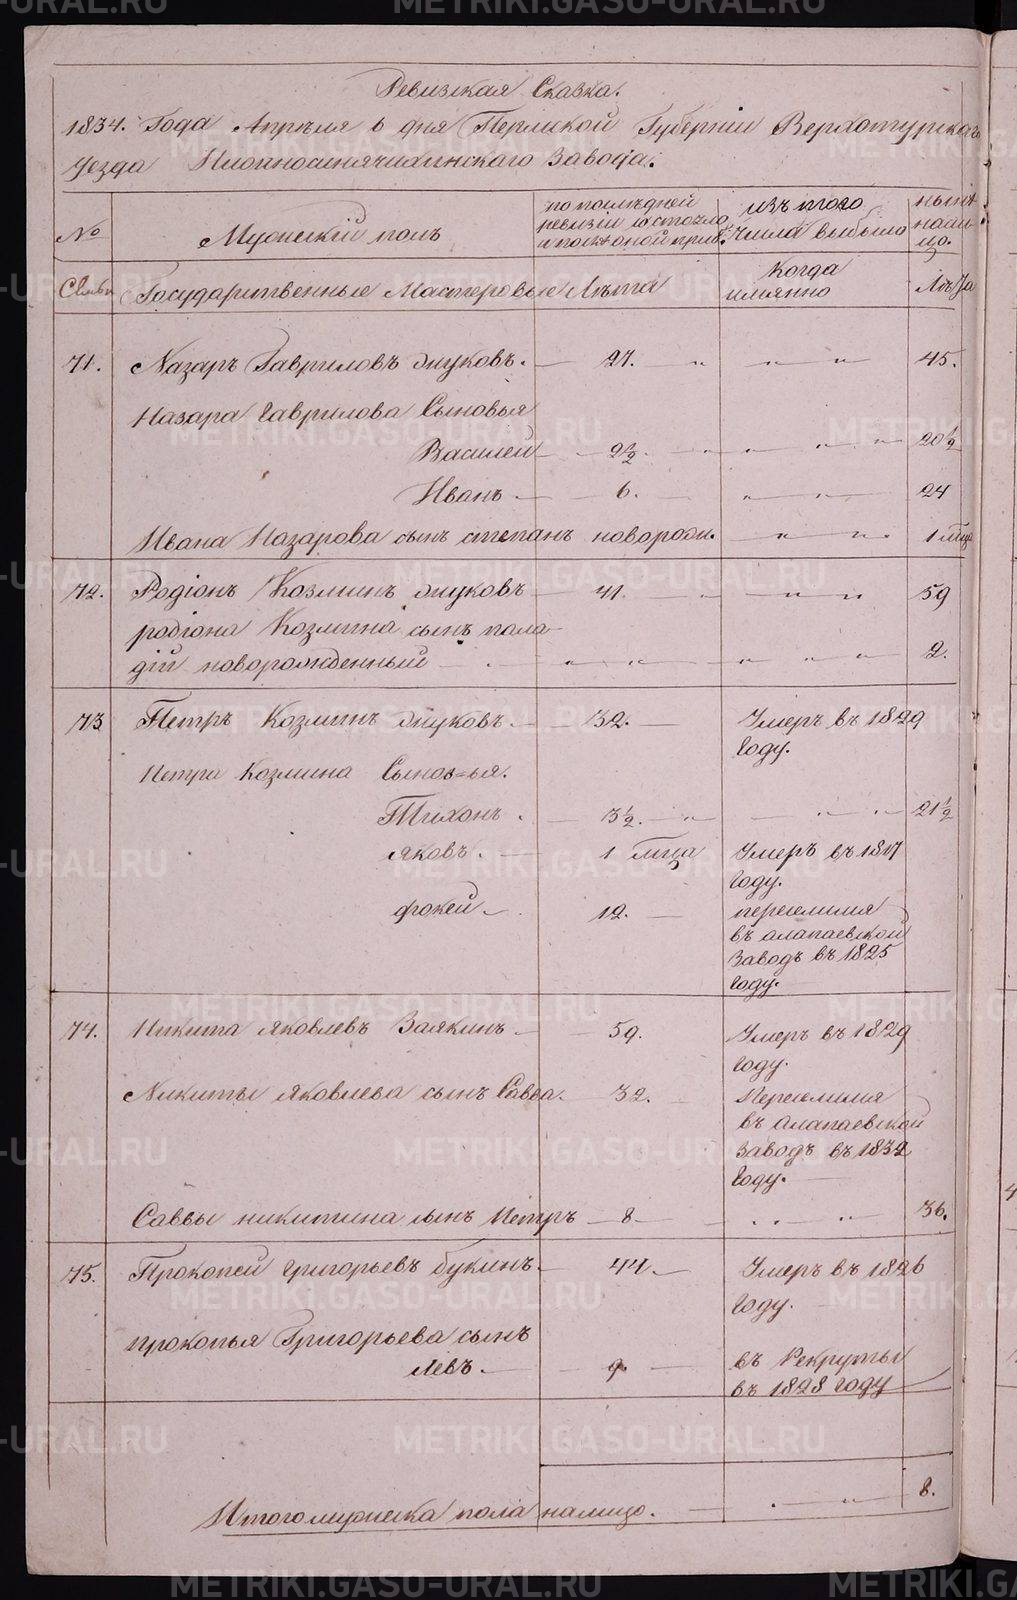 Ревизская Сказка.
1834. Года Апреля 6 дня Пермской Губернии Верхотурскаго
Уезда Нижнесинячихинскаго Завода.
№
Мужеский полъ
по последней ревизии состояло и после оной приб.
изъ того числа выбыло
ныне налицо.
Семьи
Государственные Мастеровые
Лѣта
когда имянно
Лѣта
71. Назаръ Гавриловъ Жуковъ. — 27. — „ — „ — „ — 45.
Назара Гаврилова Сыновья
Василей — 2½. — „ — „ — „ — 20½
Иванъ — 6. — „ — „ — 24
Ивана Назарова сынъ степанъ новорожд. — „ — „ — 1 мца
72. Родіонъ Козминъ жуковъ — 41. — „ — „ — „ 59
родіона Козмина сынъ пала-
дій новорожденный — „ — „ — „ — „ — 2.
73 Петръ Козминъ жуковъ. — 32. — Умеръ въ 1829
году.
Петра Козмина Сыновья.
Тихонъ. — 3½. — „ — „ — „ 21½
яковъ. — 1 мца Умеръ въ 1817
году.
фокей — 12. — переселился
въ алапаевской
Заводъ въ 1825
году.
74. Никита яковлевъ Заякинъ — 59. Умеръ въ 1829
году.
Никиты яковлева сынъ Савва. 32. — Переселился
въ алапаевской
Заводъ въ 1832
году.
Саввы никитина сынъ Петръ — 8 — „ — „ 36.
75. Прокопей григорьевъ букинъ. — 44. — Умеръ въ 1826
году.
прокопья Григорьева сынъ
Левъ. — 9. — въ Рекруты
въ 1828 году
Итого мужеска пола налицо. — „ — 8.
METRIKI.GASO-URAL.RU